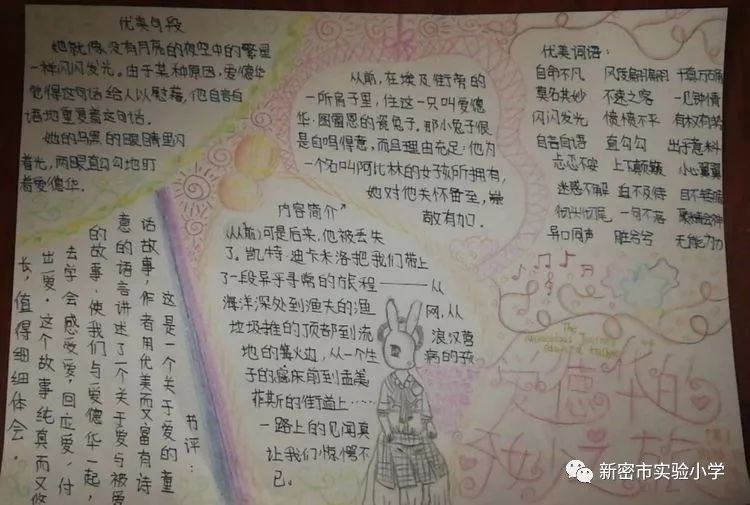 优美句段
她就像没有月亮的夜空中的繁星
一样闪闪发光。由于某种原因，爱德华
觉得这句话给人以慰藉，他自言自
语地重复着这句话。
她的乌黑的眼睛里闪
着光，两眼直勾勾地盯
着爱德华。
从前，在埃及街旁的
一所房子里，住这一只叫爱德
华·图雷恩的瓷兔子。那小兔子很
是自鸣得意，而且理由充足：他为
一个名叫阿比林的女孩所拥有，
她对他关怀备至，崇
敬有加。
优美词语：
自命不凡 风度翩翩 千真万确
莫名其妙 不速之客 一见钟情
闪闪发光 愤愤不平 有权有势
自言自语 直勾勾 出乎意料
忐忑不安 上下颠簸 小心翼翼
迷惑不解 迫不及待 目不转睛
彻头彻尾 一句不落 聚精会神
异口同声 脏兮兮 无能为力
内容简介
(从前)可是后来，他被丢失
了。凯特·迪卡米洛把我们带上
了一段异乎寻常的旅程——从
海洋深处到渔夫的渔网，从
垃圾堆的顶部到流浪汉营
地的篝火边，从一个生病的孩
子的病床前到孟美
菲斯的街道上……
一路上的见闻真
让我们惊愕不
已。
书评：
这是一个关于爱的童
话故事，作者用优美而又富有诗
意的语言讲述了一个关于爱与被爱
的故事，使我们与爱德华一起，
去学会感受爱，回应爱，付
出爱。这个故事纯真而又悠
长，值得细细体会。
The
miraculous Journey
of
edward tulane
爱德华的
奇妙之旅
新密市实验小学